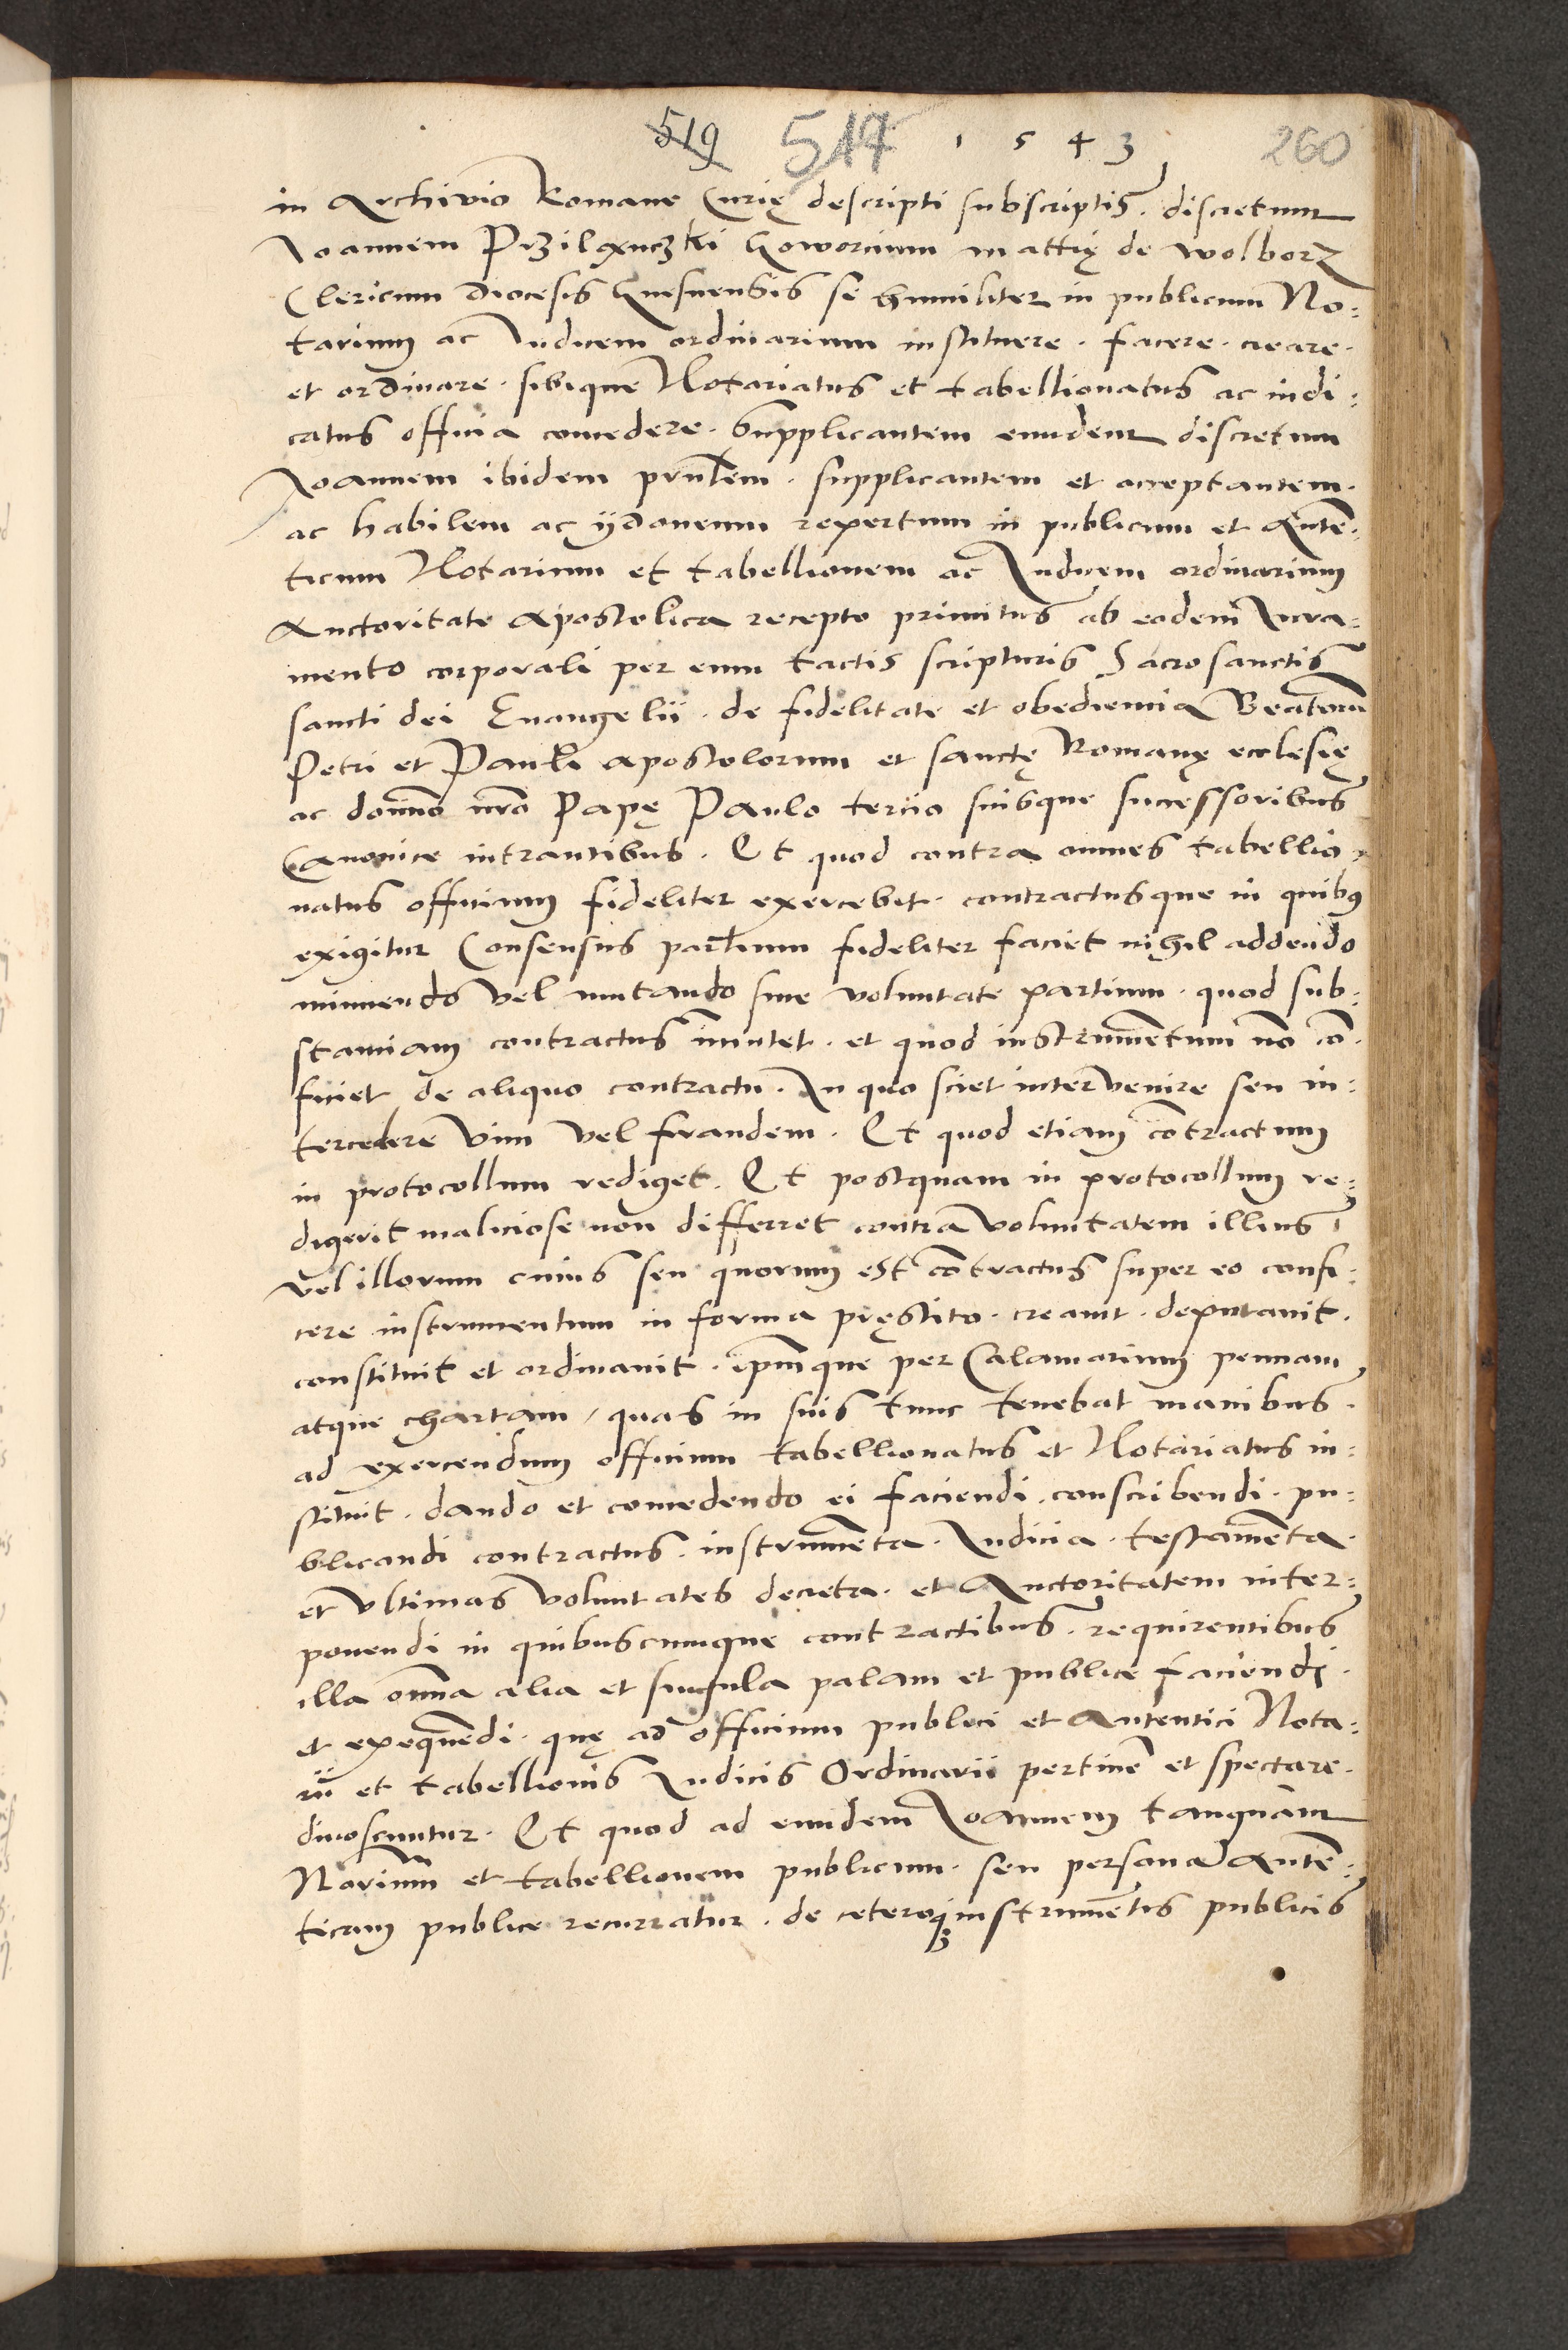 519 517 1 5 4 3 260
in Archivio Romane Curię descripti subscriptis. discretum
Joannem Przilanczki Goworcium Mattię de Wolborz
Clericum Diocesis Gnesnensis se humiliter in publicum No:
tarium ac Judicem ordinarium instituere. facere. creare.
et ordinare. sibique Notariatus et tabellionatus ac iudi:
catus officia concedere. Supplicantem eundem discretum
Joannem ibidem pñtem. supplicantem et acceptantem.
ac habilem ac ÿdoneum repertum in publicum et Autē:
ticum Notarium et tabellionem ac Judicem ordinarium
Auctoritate Apostolica recepto primitus ab eodem Jura:
mento corporali per eum tactis scripturis Sacrosanctis
sancti dei Euangelii. de fidelitate et obediencia Beatorum
Petri et Pauli Apostolorum et sanctę Romanę ecclesię
ac domino nro Papę Paulo tercio suisque successoribus
Canonice intrantibus. Et quod contra omnes tabellio:
natus officium fideliter exercebit. contractusque in quibus
exigitur Consensus partium fideliter faciet nihil addendo
minuendo vel mutando sine voluntate partium. quod sub:
stanciam contractus imutet. et quod instrumentum nō cō:
ficiet de aliquo contractu. In quo sciet intervenire seu in:
tercedere vim vel fraudem. Et quod etiam cōtractum
in protocollum rediget. Et postquam in protocollum re:
digerit maliciose non differret contra voluntatem illius
vel illorum cuius seu quorum est cōtractus super eo confi:
cere instrumentum in forma pręstito. creavit. deputavit.
constituit et ordinavit. ipmque per Calamarium pennam
atque chartam, quas in suis tunc tenebat manibus.
ad exercendum officium tabellionatus et Notariatus in:
stituit. dando et concedendo ei faciendi. conscribendi. pu:
blicandi contractus. instrumēta. Judicia. testamēta.
et ultimas voluntates decreta. et Auctoritatem inter:
ponendi in quibuscumque contractibus. requirentibus
illa om̃ia alia et singula palam et publice faciendi.
et exequēdi. quę ad officium publici et Autentici Nota:
rii et tabellionis Judicis Ordinarii pertinē et spectare.
dinoscuntur. Et quod ad eundem Joannem tanquam
Notrium et tabellionem publicum. seu personā Autē:
ticam publice recurratur. de ceteroq; instrumētis publicis